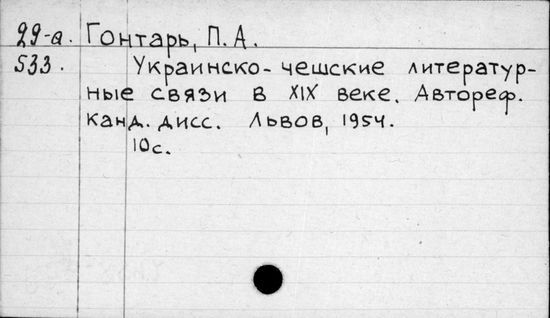 29-а. Гонтарь, П. А.
533. Украинско-чешские литератур-
ные связи в XIX веке. Автореф.
канд. дисс. Львов, 1954.
10с.